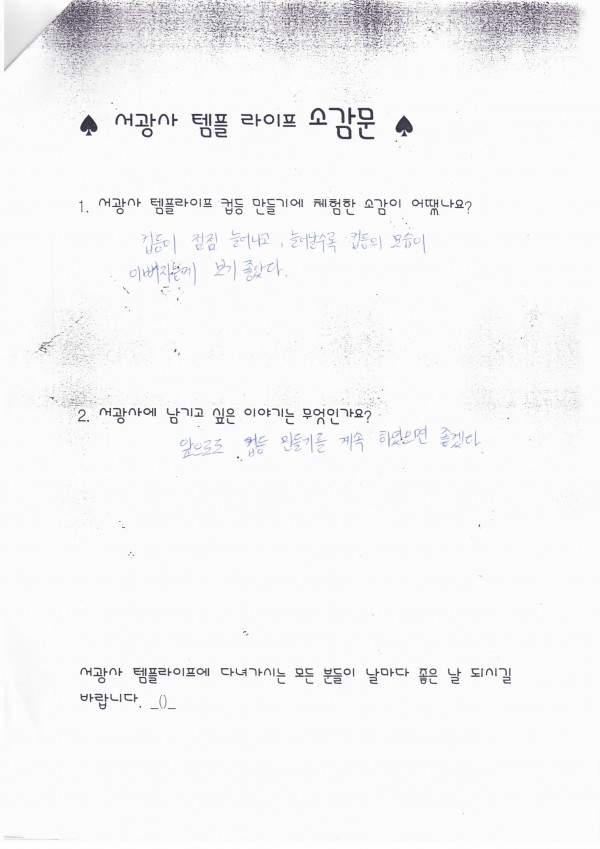 ♠ 서광사 템플 라이프 소감문 ♠
1. 서광사 템플라이프 컵등 만들기에 체험한 소감이 어땠나요?
컵등이 점점 늘어나고, 늘어날수록 컵등의 모습이
이뻐지는게 보기 좋았다.
2. 서광사에 남기고 싶은 이야기는 무엇인가요?
앞으로도 컵등 만들기를 계속 하였으면 좋겠다
서광사 템플라이프에 다녀가시는 모든 분들이 날마다 좋은 날 되시길
바랍니다. _()_